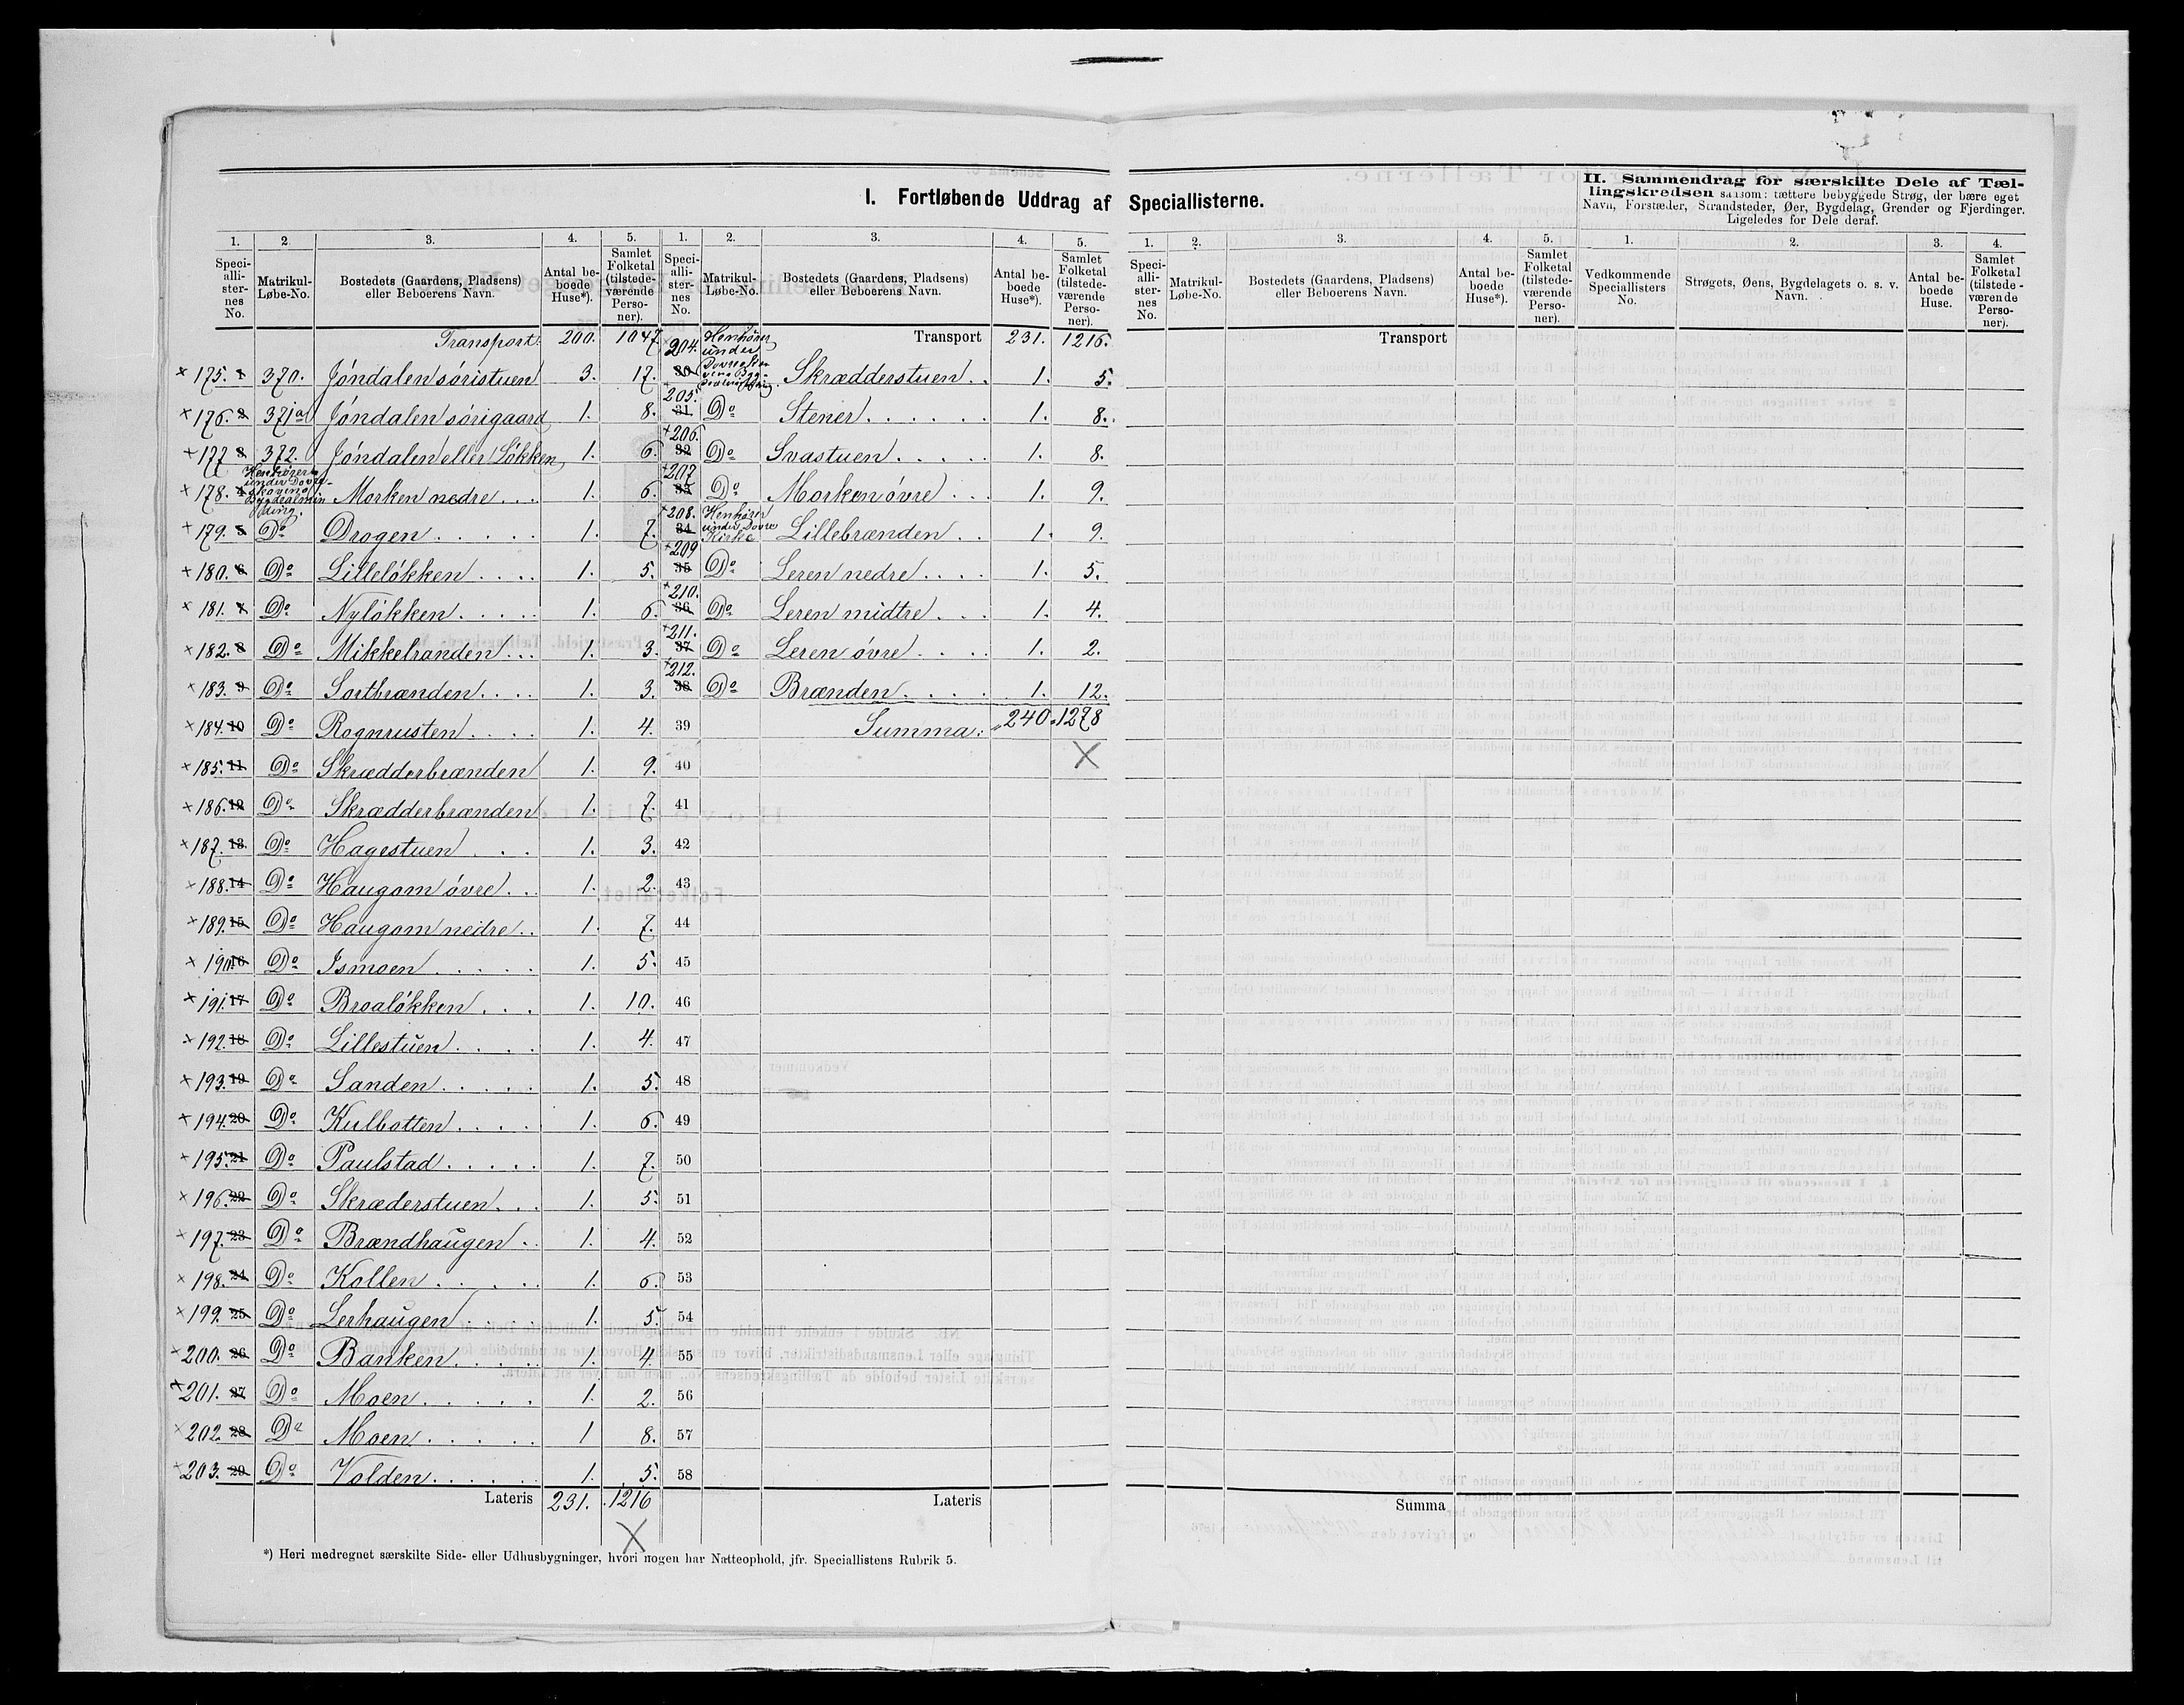 I. Fortløbende Uddrag af Speciallisterne.
II. Sammendrag for særskilte Dele af Tæl-
lingskredsen saasom: tættere bebyggede Strøg, der bære eget
Navn, Forstæder, Strandsteder, Øer, Bygdelag, Grender og Fjerdinger.
Ligeledes for Dele deraf.
1. 2. 3. 4. 5. 1. 2. 3. 4. 5.
Speciallisternes No. Matrikul-Løbe-No. Bostedets (Gaardens, Pladsens) eller Beboerens Navn. Antal beboede Huse*). Samlet Folketal (tilstedeværende Personer).
Speciallisternes No. Matrikul-Løbe-No. Bostedets (Gaardens, Pladsens) eller Beboerens Navn. Antal beboede Huse*). Samlet Folketal (tilstedeværende Personer).
Transport: 200. 1047
175. 1 370. Jóndalen sóristuen 3. 17.
176. 2 371a Jóndalen sórigaard 1. 8.
177 3 372. Jóndalen eller Lókken 1. 6.
178. 4 Henhörer under Dovre- Morken nedre 1. 6.
179. 5 Do Drogen 1. 7.
180. 6 Do Lillelókken 1. 5.
181. 7 Do Nylókken 1. 6.
182. 8 Do Mikkelranden 1. 3.
183. 9 Do Sortbrænden 1. 3.
184. 10 Do Rognrusten 1. 4.
185. 11 Do Skrædderbrænden 1. 9.
186. 12 Do Skrædderbrænden 1. 7.
187. 13 Do Hagestuen 1. 3.
188. 14 Do Haugom óvre 1. 2.
189. 15 Do Haugom nedre 1. 7.
190. 16 Do Ismoen 1. 5.
191. 17 Do Broalókken 1. 10.
192. 18 Do Lillestuen 1. 4.
193. 19 Do Sanden 1. 5.
194. 20 Do Kulbotten 1. 6.
195. 21 Do Paulstad 1. 7.
196. 22 Do Skræderstuen 1. 5.
197. 23 Do Brændhaugen 1. 4.
198. 24 Do Kollen 1. 6.
199. 25 Do Lerhaugen 1. 5.
200. 26 Do Banken 1. 4.
201. 27 Do Moen 1. 2.
202. 28 Do Moen 1 8.
203. 29 Do Volden 1. 5.
Lateris 231. 1216
Transport 231. 1216.
204. 30 Henhörer under Skrædderstuen 1. 5.
205. 31 Do Stener 1. 8.
206. 32 Do Svastuen 1. 8.
207 33 Do Morken óvre 1. 9.
208. 34 Henhörer under Dovre Kirke Lillebrænden 1. 9.
209 35 Do Leren nedre 1. 5.
210. 36 Do Leren midtre 1. 4.
211. 37 Do Leren óvre 1. 2.
212. 38 Do Brænden 1. 12.
39 Summa: 240. 1278
40
41
42
43
44
45
46
47
48
49
50
51
52
53
54
55
56
57
58
Lateris
*) Heri medregnet særskilte Side- eller Udhusbygninger, hvori nogen har Natteophold, jfr. Speciallistens Rubrik 5.
1. 2. 3. 4. 5. 1. 2. 3. 4.
Speciallisternes No. Matrikul-Løbe-No. Bostedets (Gaardens, Pladsens) eller Beboerens Navn. Antal beboede Huse*). Samlet Folketal (tilstedeværende Personer).
Vedkommende Speciallisters No. Strøgets, Øens, Bygdelagets o. s. v. Navn. Antal beboede Huse. Samlet Folketal (tilstedeværende Personer).
Transport
Summa